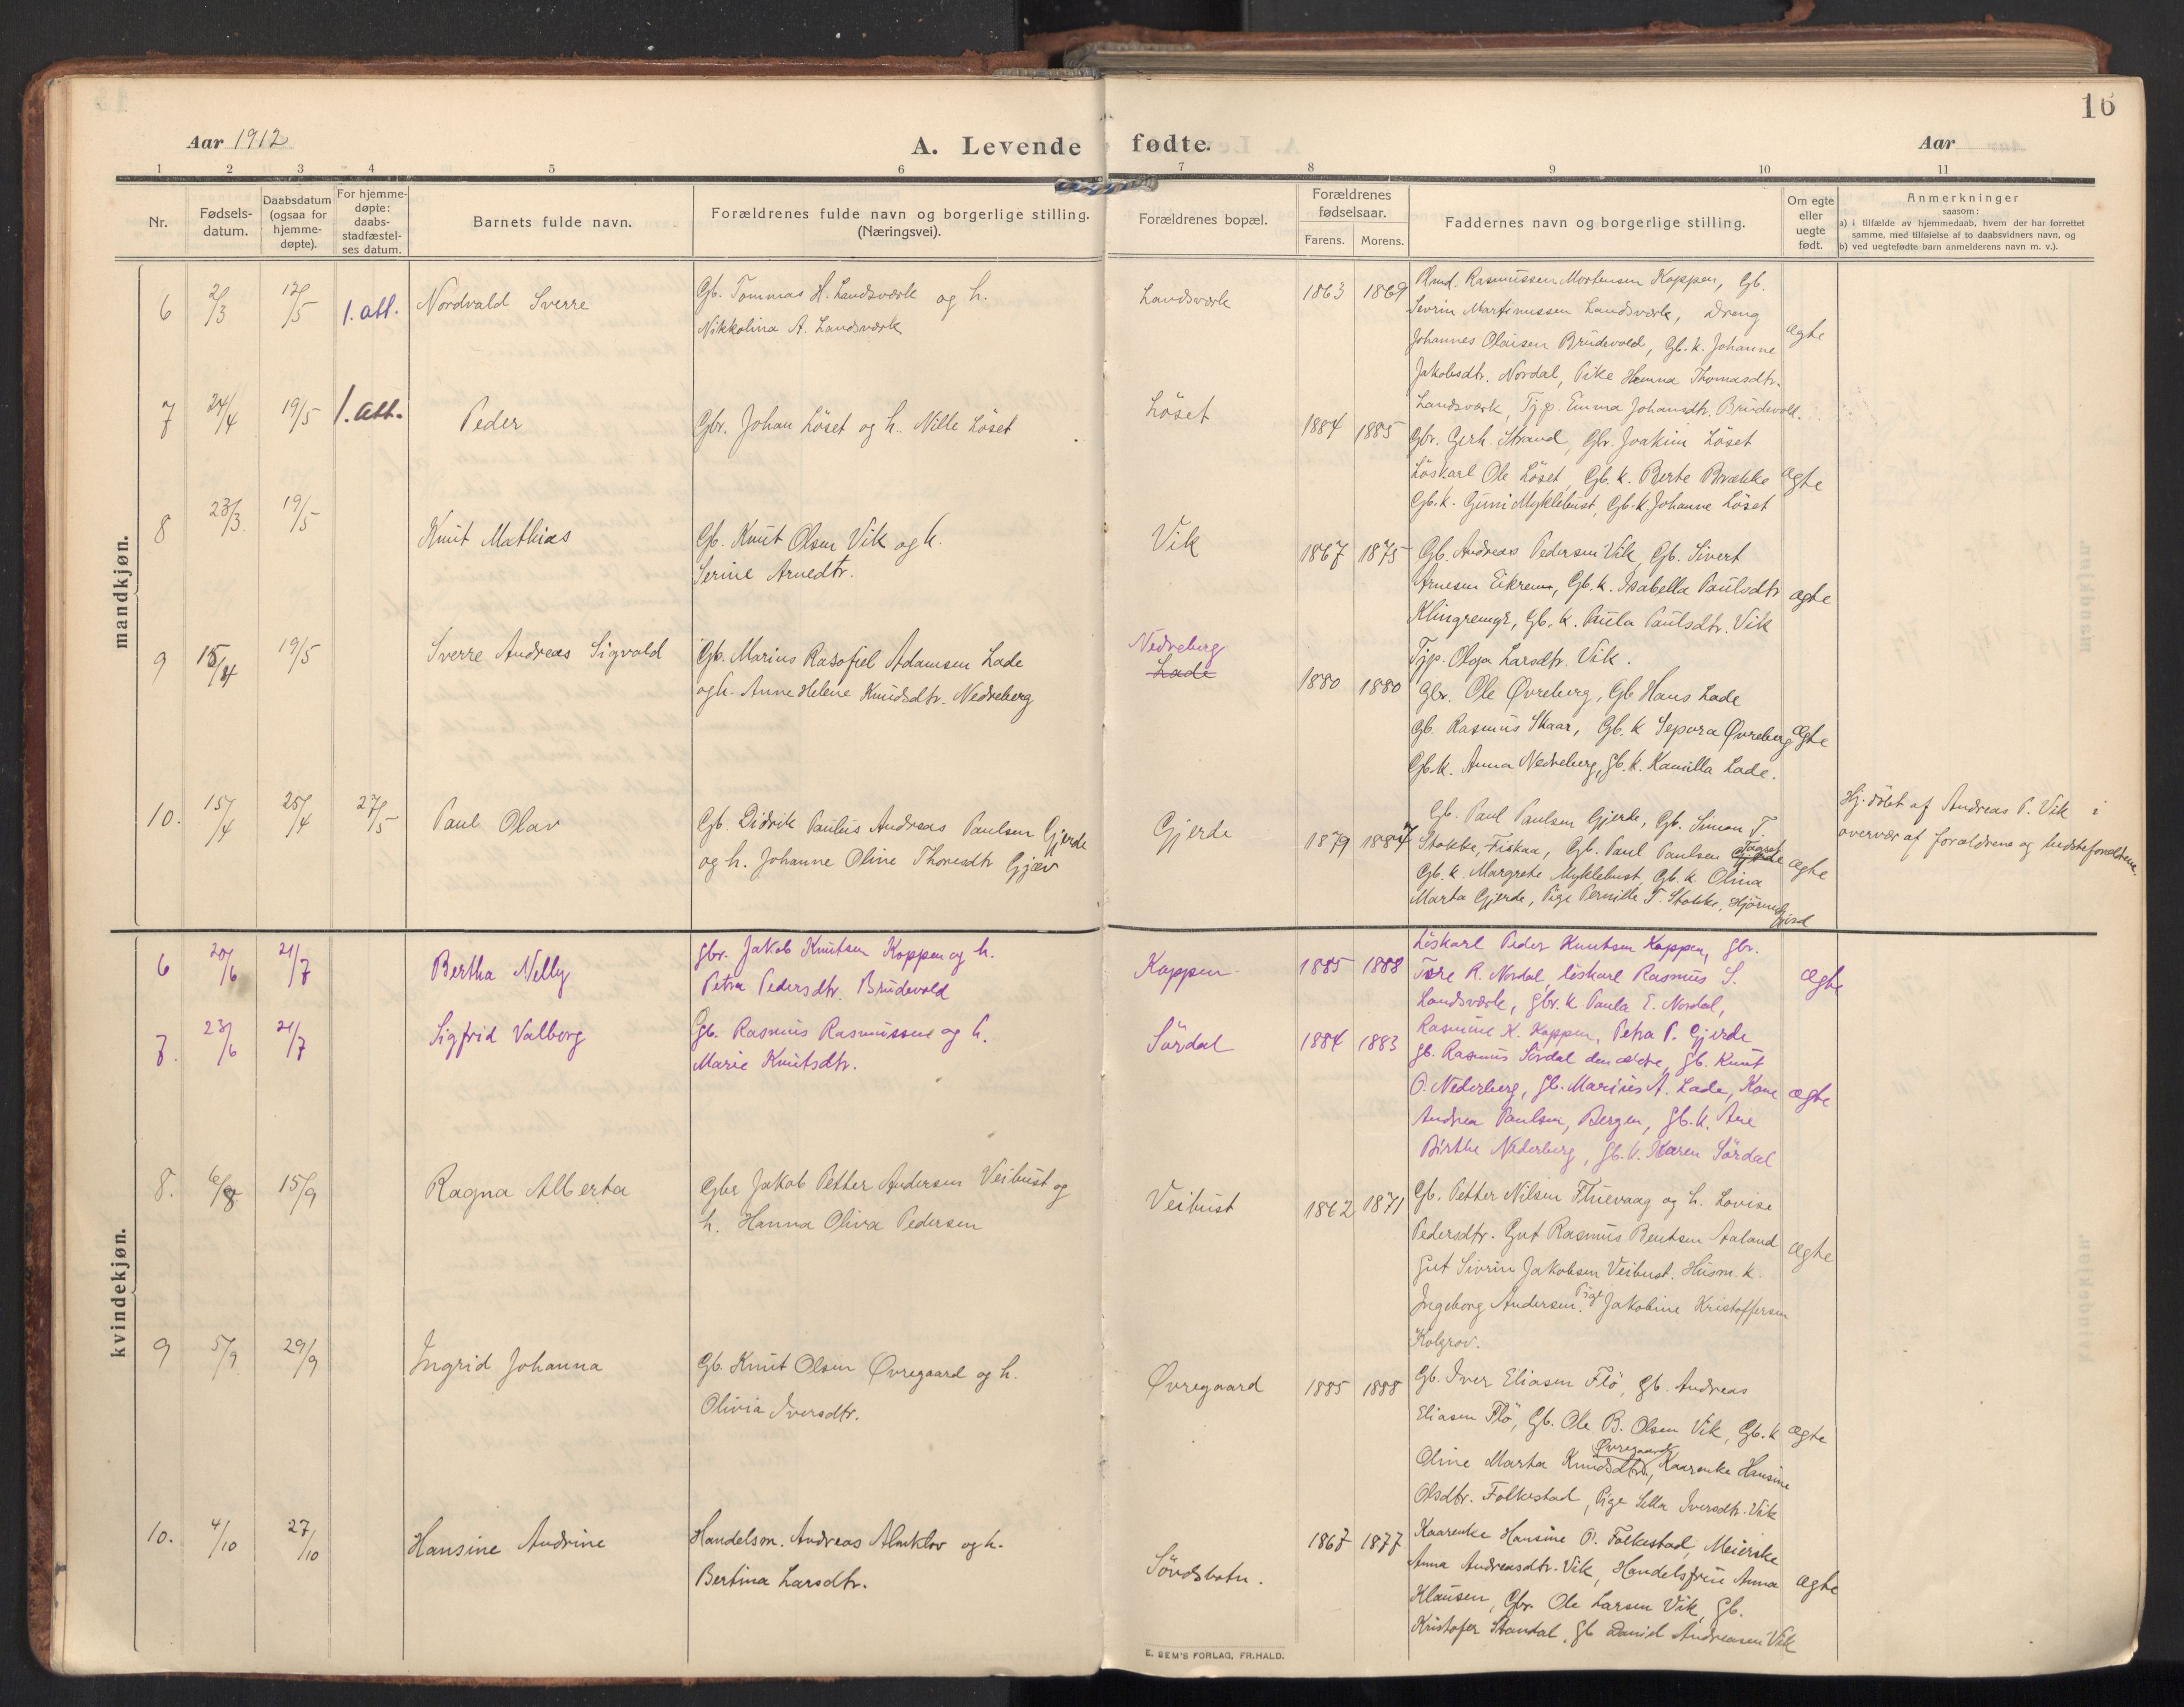 16
Aar 1912
A. Levende fødte.
Aar
1 2 3 4 5 6 7 8 9 10 11
Nr.
Fødsels-
datum.
Daabsdatum
(ogsaa for
hjemme-
døpte).
For hjemme-
døpte:
daabs-
stadfæstel-
ses datum.
Barnets fulde navn.
Forældrenes fulde navn og borgerlige stilling.
(Næringsvei).
Forældrenes bopæl.
Forældrenes
fødselsaar.
Farens. Morens.
Faddernes navn og borgerlige stilling.
Om egte
eller
uegte
født.
Anmerkninger
saasom:
a) i tilfælde av hjemmedaab, hvem der har forrettet
samme, med tilføielse af to daabsvidners navn, og
b) ved uegtefødte barn anmelderens navn m. v.).
mandkjøn.
6 2/3 17/5 1. att. Nordvald Sverre
Gb. Tommas H. Landsværk og h.
Nikkolina A. Landsværk
Landsværk 1863 1869
Rasmussen Mortensen Koppen, Gb.
Sevrin Martinussen Landsværk, Dreng
Johannes Olaisen Brudevold, Gb. k. Johanne
Jakobsdtr. Nordal, Pike Hanna Thomasdtr.
Landsværk, Tjp. Emma Johansdtr. Brudevold.
ægte
7 24/4 19/5 1. att. Peder
Gbr. Johan Löset og h. Nille Löset
Löset 1884 1885
Gbr. Gerh. Strand, Gbr. Joakim Löset
Löskarl Ole Löset, Gb. k. Berte Brække
Gb. k. Guni Myklebust, Gb. k. Johanne Löset
ægte
8 23/3. 19/5 Knut Mathias
Gb. Knut Olsen Vik og h.
Serine Arnedtr.
Vik 1867 1875
Gb. Andreas Pedersen Vik, Gb. Sivert
Arnesen Eikrem, Gb. k. Isabella Paulsdtr
Klingremyr, Gb. k. Paula Paulsdtr. Vik
Tjp. Olga Larsdtr. Vik.
ægte
9 15/4 19/5 Sverre Andreas Sigvald
Gb. Marius Rasofiel Adamsen Lade
og h. Anne Helene Knudsdtr. Nedreberg
Nedreberg
Lade
1880 1880
Gbr. Ole Øvreberg, Gb Hans Lade
Gb. Rasmus Skaar, Gb. k Sepora Øvreberg
Gb. k. Anna Nedreberg, Gb. k. Kamilla Lade.
ægte
10. 15/4 25/4 27/5 Paul Olav
Gb. Didrik Paulus Andreas Paulsen Gjerde
og h. Johanne Oline Thoresdtr Gjæv
Gjerde 1879 1887
Gb. Paul Paulsen Gjerde, Gb. Simon T.
Stokke, Fiskaa, Gb. Paul Paulsen
Gb. k. Margrete Myklebust, Gb. k. Olina
Marta Gjerde, Pige Pernille T. Stokke,
ægte
Hj. döbt af Andreas P. Vik i
overvær af forældrene og bedsteforældrene.
kvindekjøn.
6 20/6 21/7 Bertha Nelly
Gbr. Jakob Knutsen Koppen og h.
Petra Pedersdtr. Brudevold
Koppen 1885 1888
Löskarl Peder Knutsen Koppen, Gbr.
Tore R. Nordal, löskarl Rasmus S.
Landsværk, Gbr. k. Paula E. Nordal,
Rasmine K. Koppen, Petra P. Gjerde
ægte
7. 23/6 21/7 Sigfrid Valborg
Gb. Rasmus Rasmussen og h.
Marie Knutsdtr.
Sördal 1884 1883
Gb. Rasmus Sördal den ældre, Gb. Knut
O. Nederberg, Gb. Marius A. Lade, Kone
Andrea Paulsen, Bergen, Gb. k. Ane
Birthe Nederberg, Gb. k. Karen Sördal
ægte
8. 6/8 15/9 Ragna Alberta
Gbr Jakob Petter Andersen Veibust og
h. Hanna Oliva Pedersen
Veibust 1862 1871
Gb. Petter Nilsen Fluevaag og h. Lovise
Pedersdtr. Gut Rasmus Bentsen Aaland
Gut Sivrin Jakobsen Veibust. Husm. k.
Ingeborg Andersen. Pige Jakobine Kristoffersen
Kolgrov.
ægte
9 5/9 29/9 Ingrid Johanna
Gb. Knut Olsen Øvregaard og h.
Olivia Iversdtr.
Øvregaard 1885 1888
Gb. Iver Eliasen Flö, Gb. Andreas
Eliasen Flö, Gb. Ole B. Olsen Vik, Gb. k
Oline Marta Knudsdtr. Øvregaard, Kaarenke Hansine
Olsdtr. Folkestad, Pige Sella Iversdtr. Vik
ægte
10. 4/10 27/10 Hansine Andrine
Handelsm. Andreas Almklov og h.
Bertina Larsdtr.
Söndsbotn. 1867 1877
Kaarenke Hansine O. Folkestad, Meierske
Anna Andreasdtr. Vik, Handelsfrue Anna
Klausen, Gbr. Ole Larsen Vik, Gb.
Kristofer Standal, Gb Daniel Andreasen Vik
ægte
E. SEM'S FORLAG, FR.HALD.